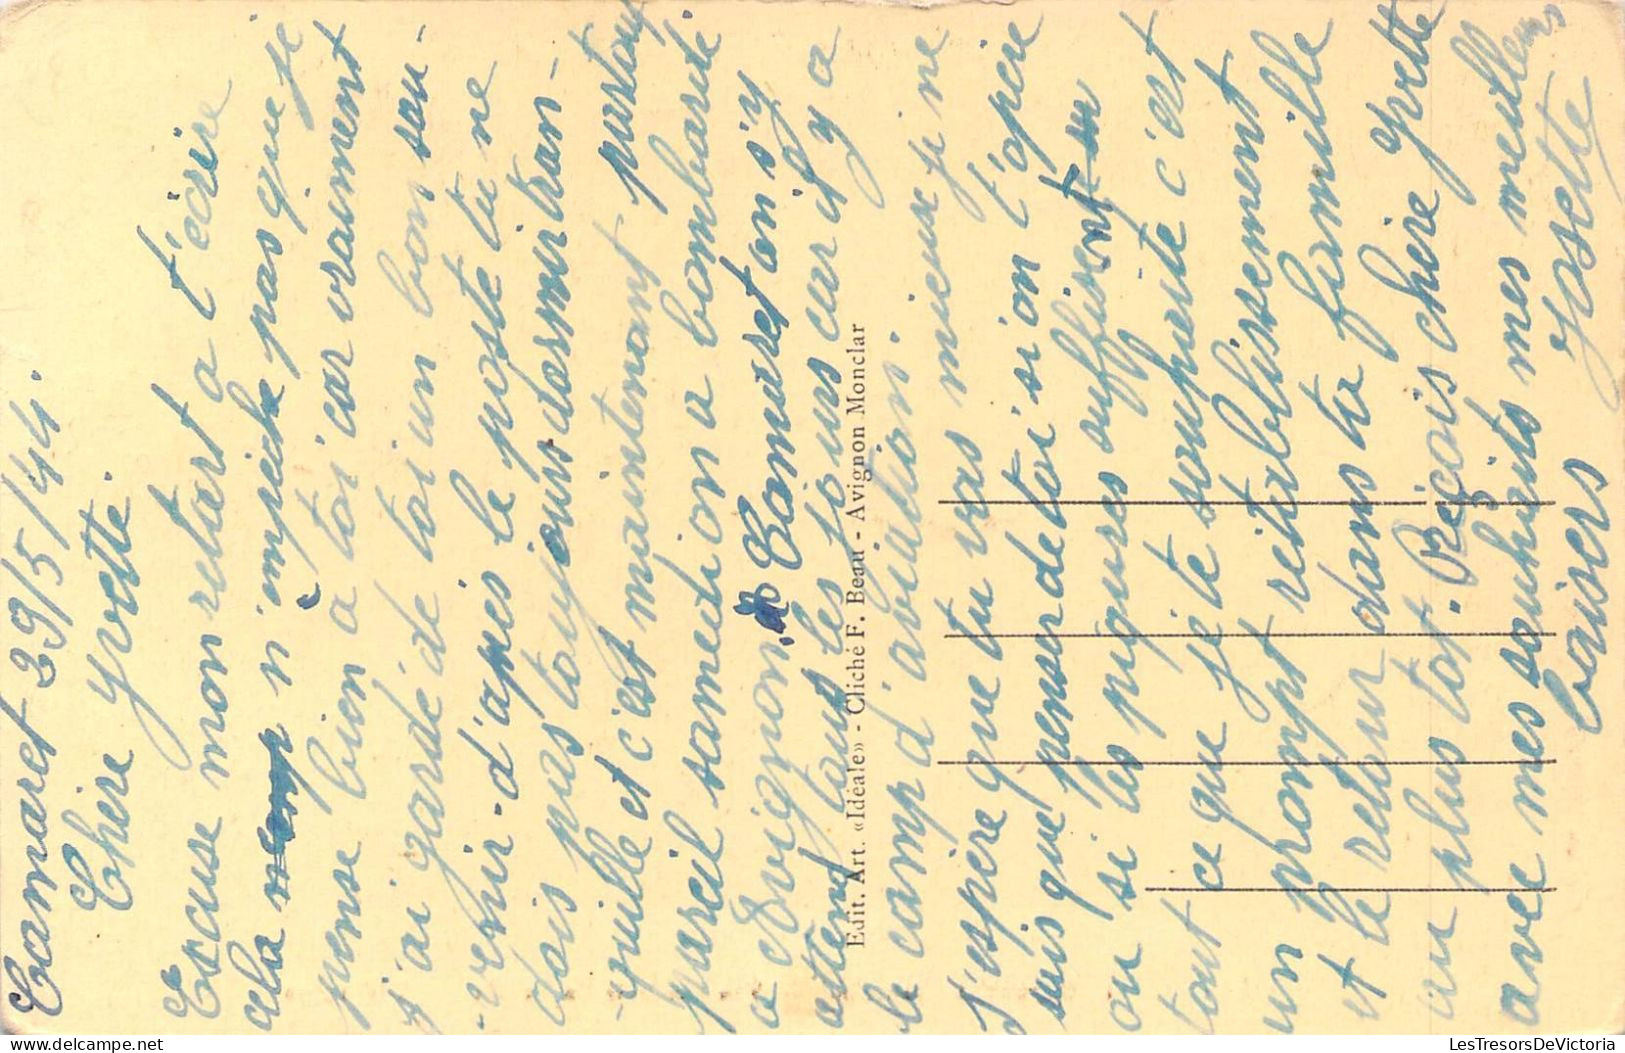 Camaret 29/5/44.
Chère Yvette.
Excuse mon retart a t'écrire
cela n'impèche pas que je
pense bien à toi car vraiment
j'ai gardé de toi un bon sou-
-venir. d'apres le poste tu ne
dois pas toujours dormir tran-
-quille et c'est maintenant partout
pareil samedi on a bombardé
a Avignon. a Camaret on s'y
attend tous les jours car il y a
le camp d'abiation.
J'espère que tu vas mieux je ne
sais que penser de toi si on t'opere
ou si les piqures suffisent
tout ce que je te souhaite c'est
un prompt retablissement
et le retour dans ta famille
au plus tot. Reçois chère Yvette
avec mes souhaits mes meilleurs
baisers Josette
Edit. Art. «Idéale» - Cliché F. Beau - Avignon Monclar
LesTresorsDeVictoria
delcampe.net